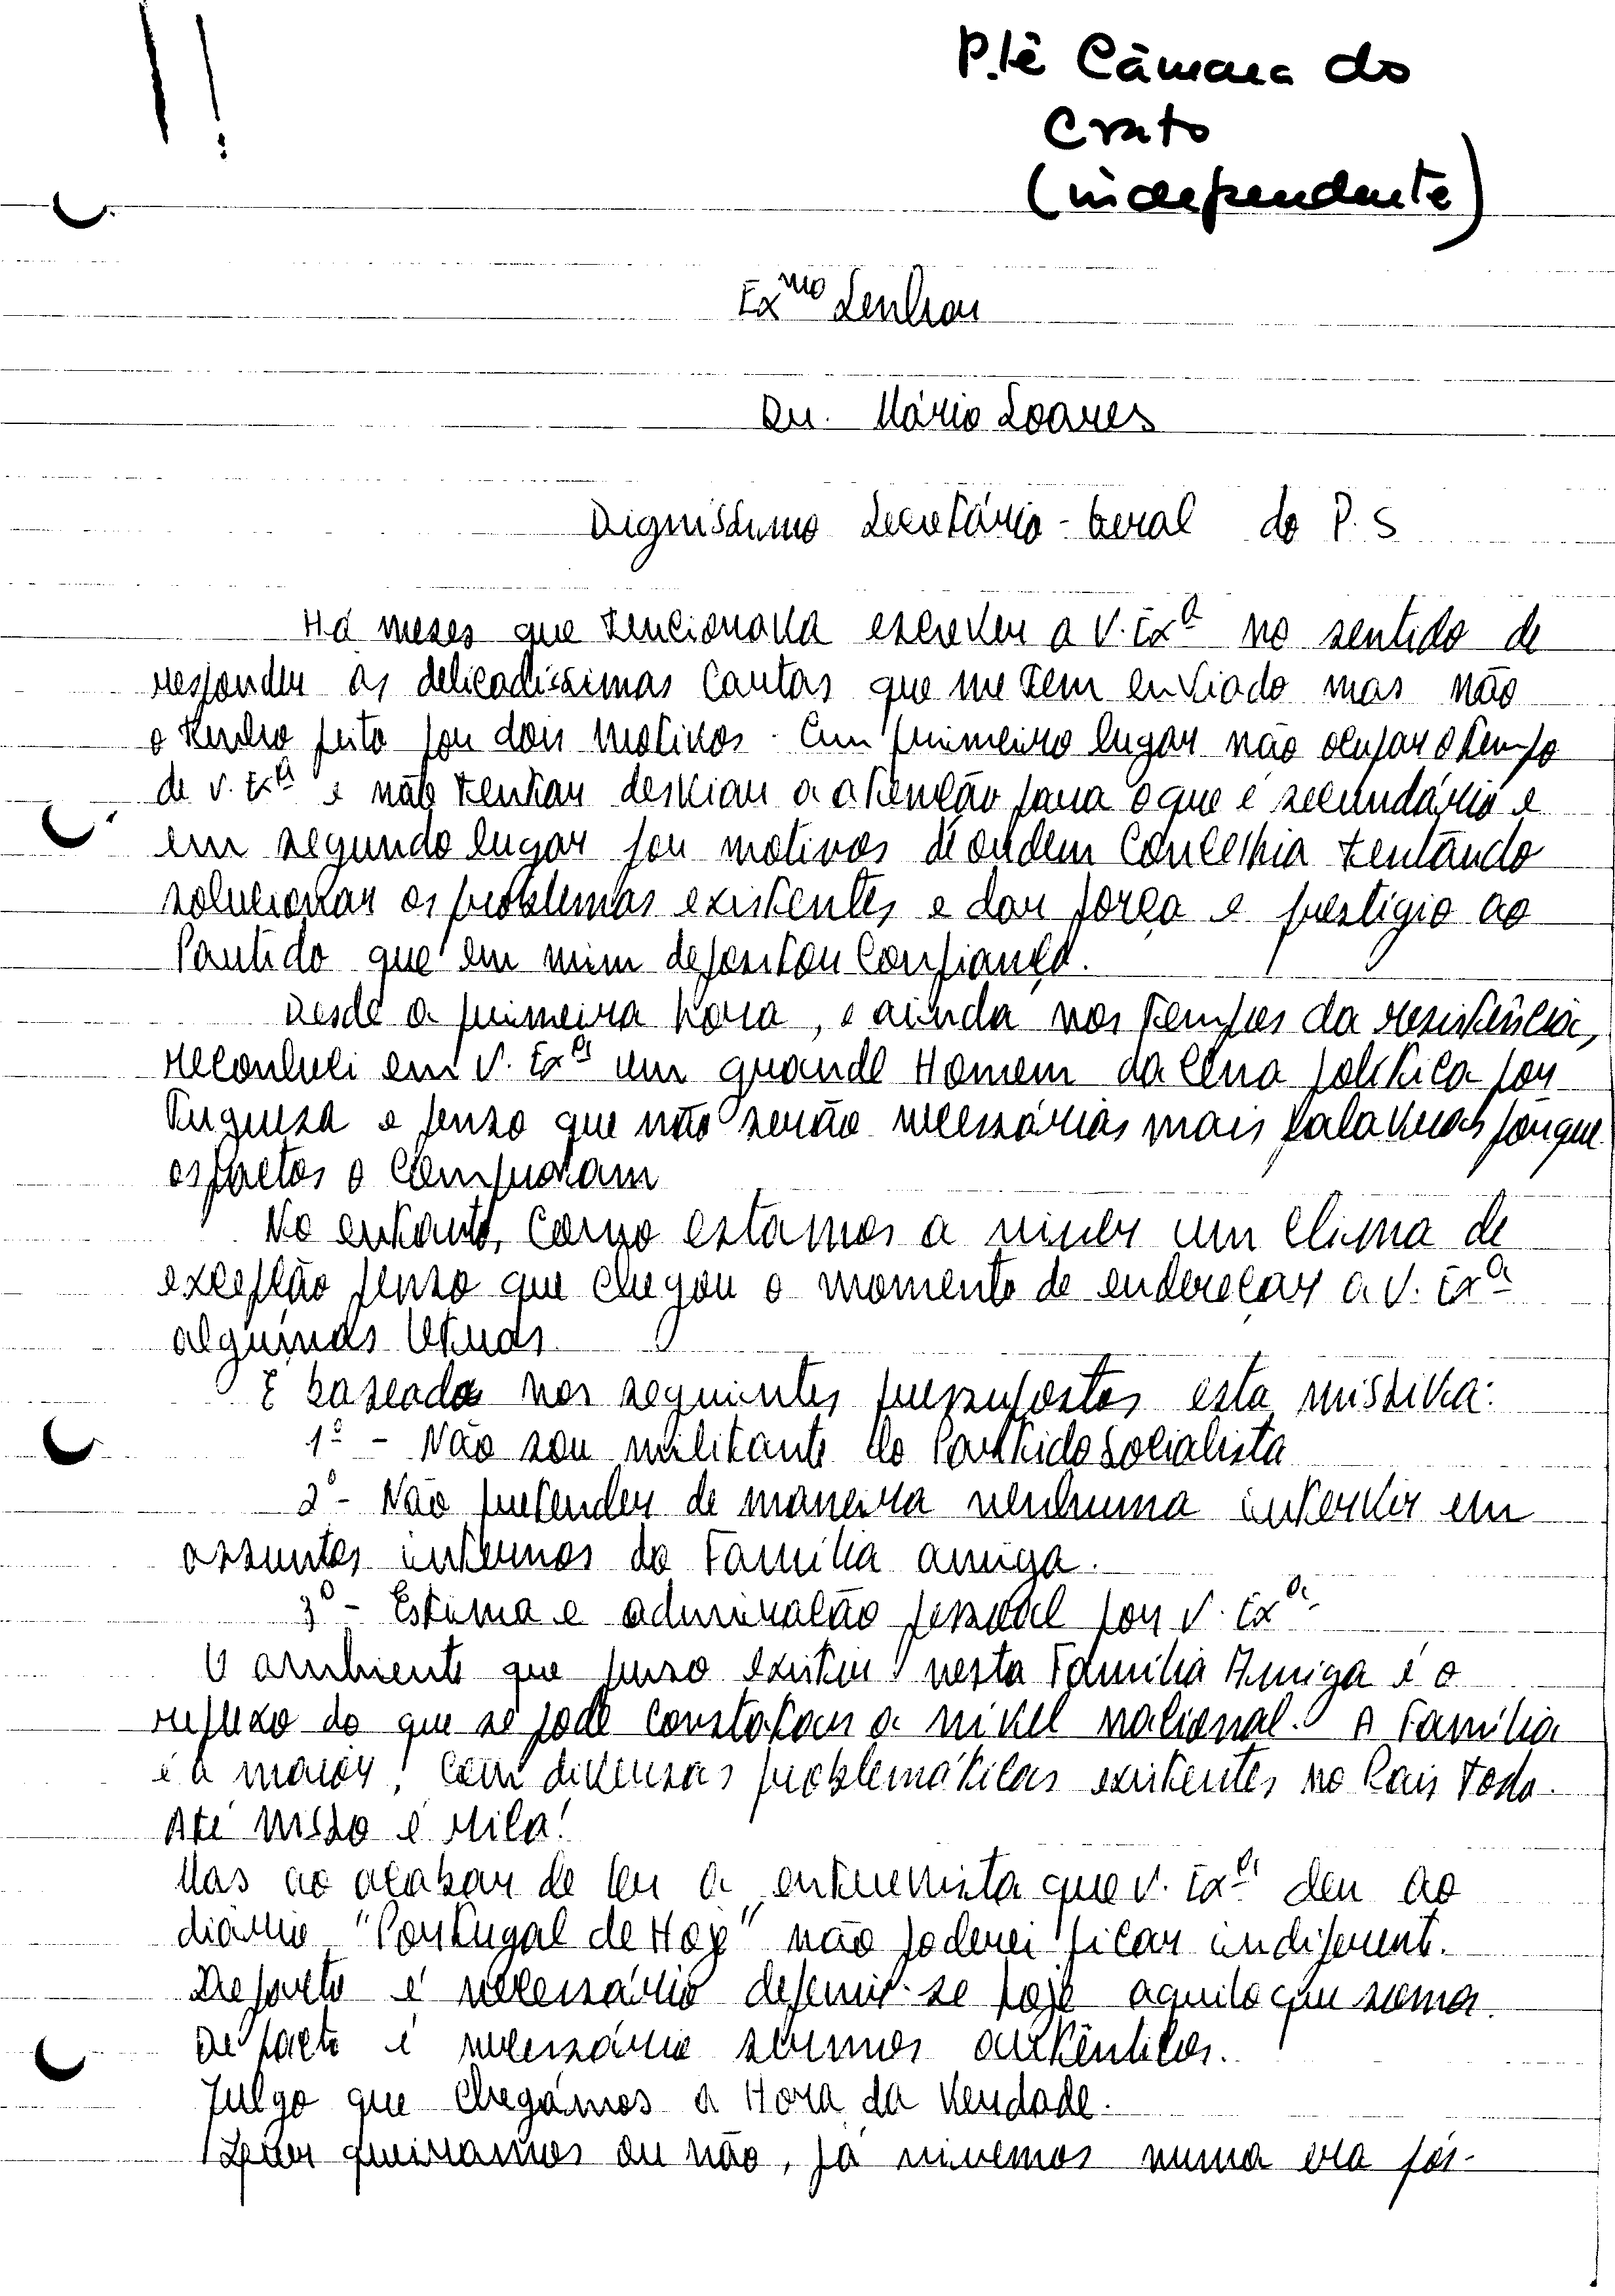 P.te Câmara do
Crato
(independente)
Exmo Senhor
Dr. Mário Soares
Digníssimo Secretário-Geral do P.S
Há meses que tencionava escrever a V. Exª no sentido de
responder às delicadíssimas cartas que me tem enviado mas não
o tenho feito por dois motivos. Em primeiro lugar não ocupar o tempo
de V. Exª e não tentar desviar a atenção para o que é secundário e
em segundo lugar por motivos de ordem concelhia tentando
solucionar os problemas existentes e dar força e prestígio ao
Partido que em mim depositou confiança.
Desde a primeira hora, e ainda nos tempos da resistência,
reconheci em V. Exª um grande Homem da cena política por
tuguesa e penso que não serão necessárias mais palavras porque
os factos o comprovam
No entanto, como estamos a viver um clima de
excepção penso que chegou o momento de endereçar a V. Exª
algumas letras.
É baseada nos seguintes pressupostos esta missiva:
1º - Não sou militante do Partido Socialista
2º - Não pretender de maneira nenhuma intervir em
assuntos internos da Família amiga.
3º - Estima e admiração pessoal por V. Exª
O ambiente que penso existir nesta Família Amiga é o
reflexo do que se pode constatar a nível nacional. A Família
é a maior! com diversas problemáticas existentes no País todo.
Até nisso é rica!
Mas ao acabar de ler a entrevista que V. Exª deu ao
diário "Portugal de Hoje" não poderei ficar indiferente.
De facto é necessário definir-se hoje aquilo que
De facto é necessário sermos autênticos.
Julgo que chegámos à Hora da Verdade.
queiramos ou não, já vivemos numa era pós-